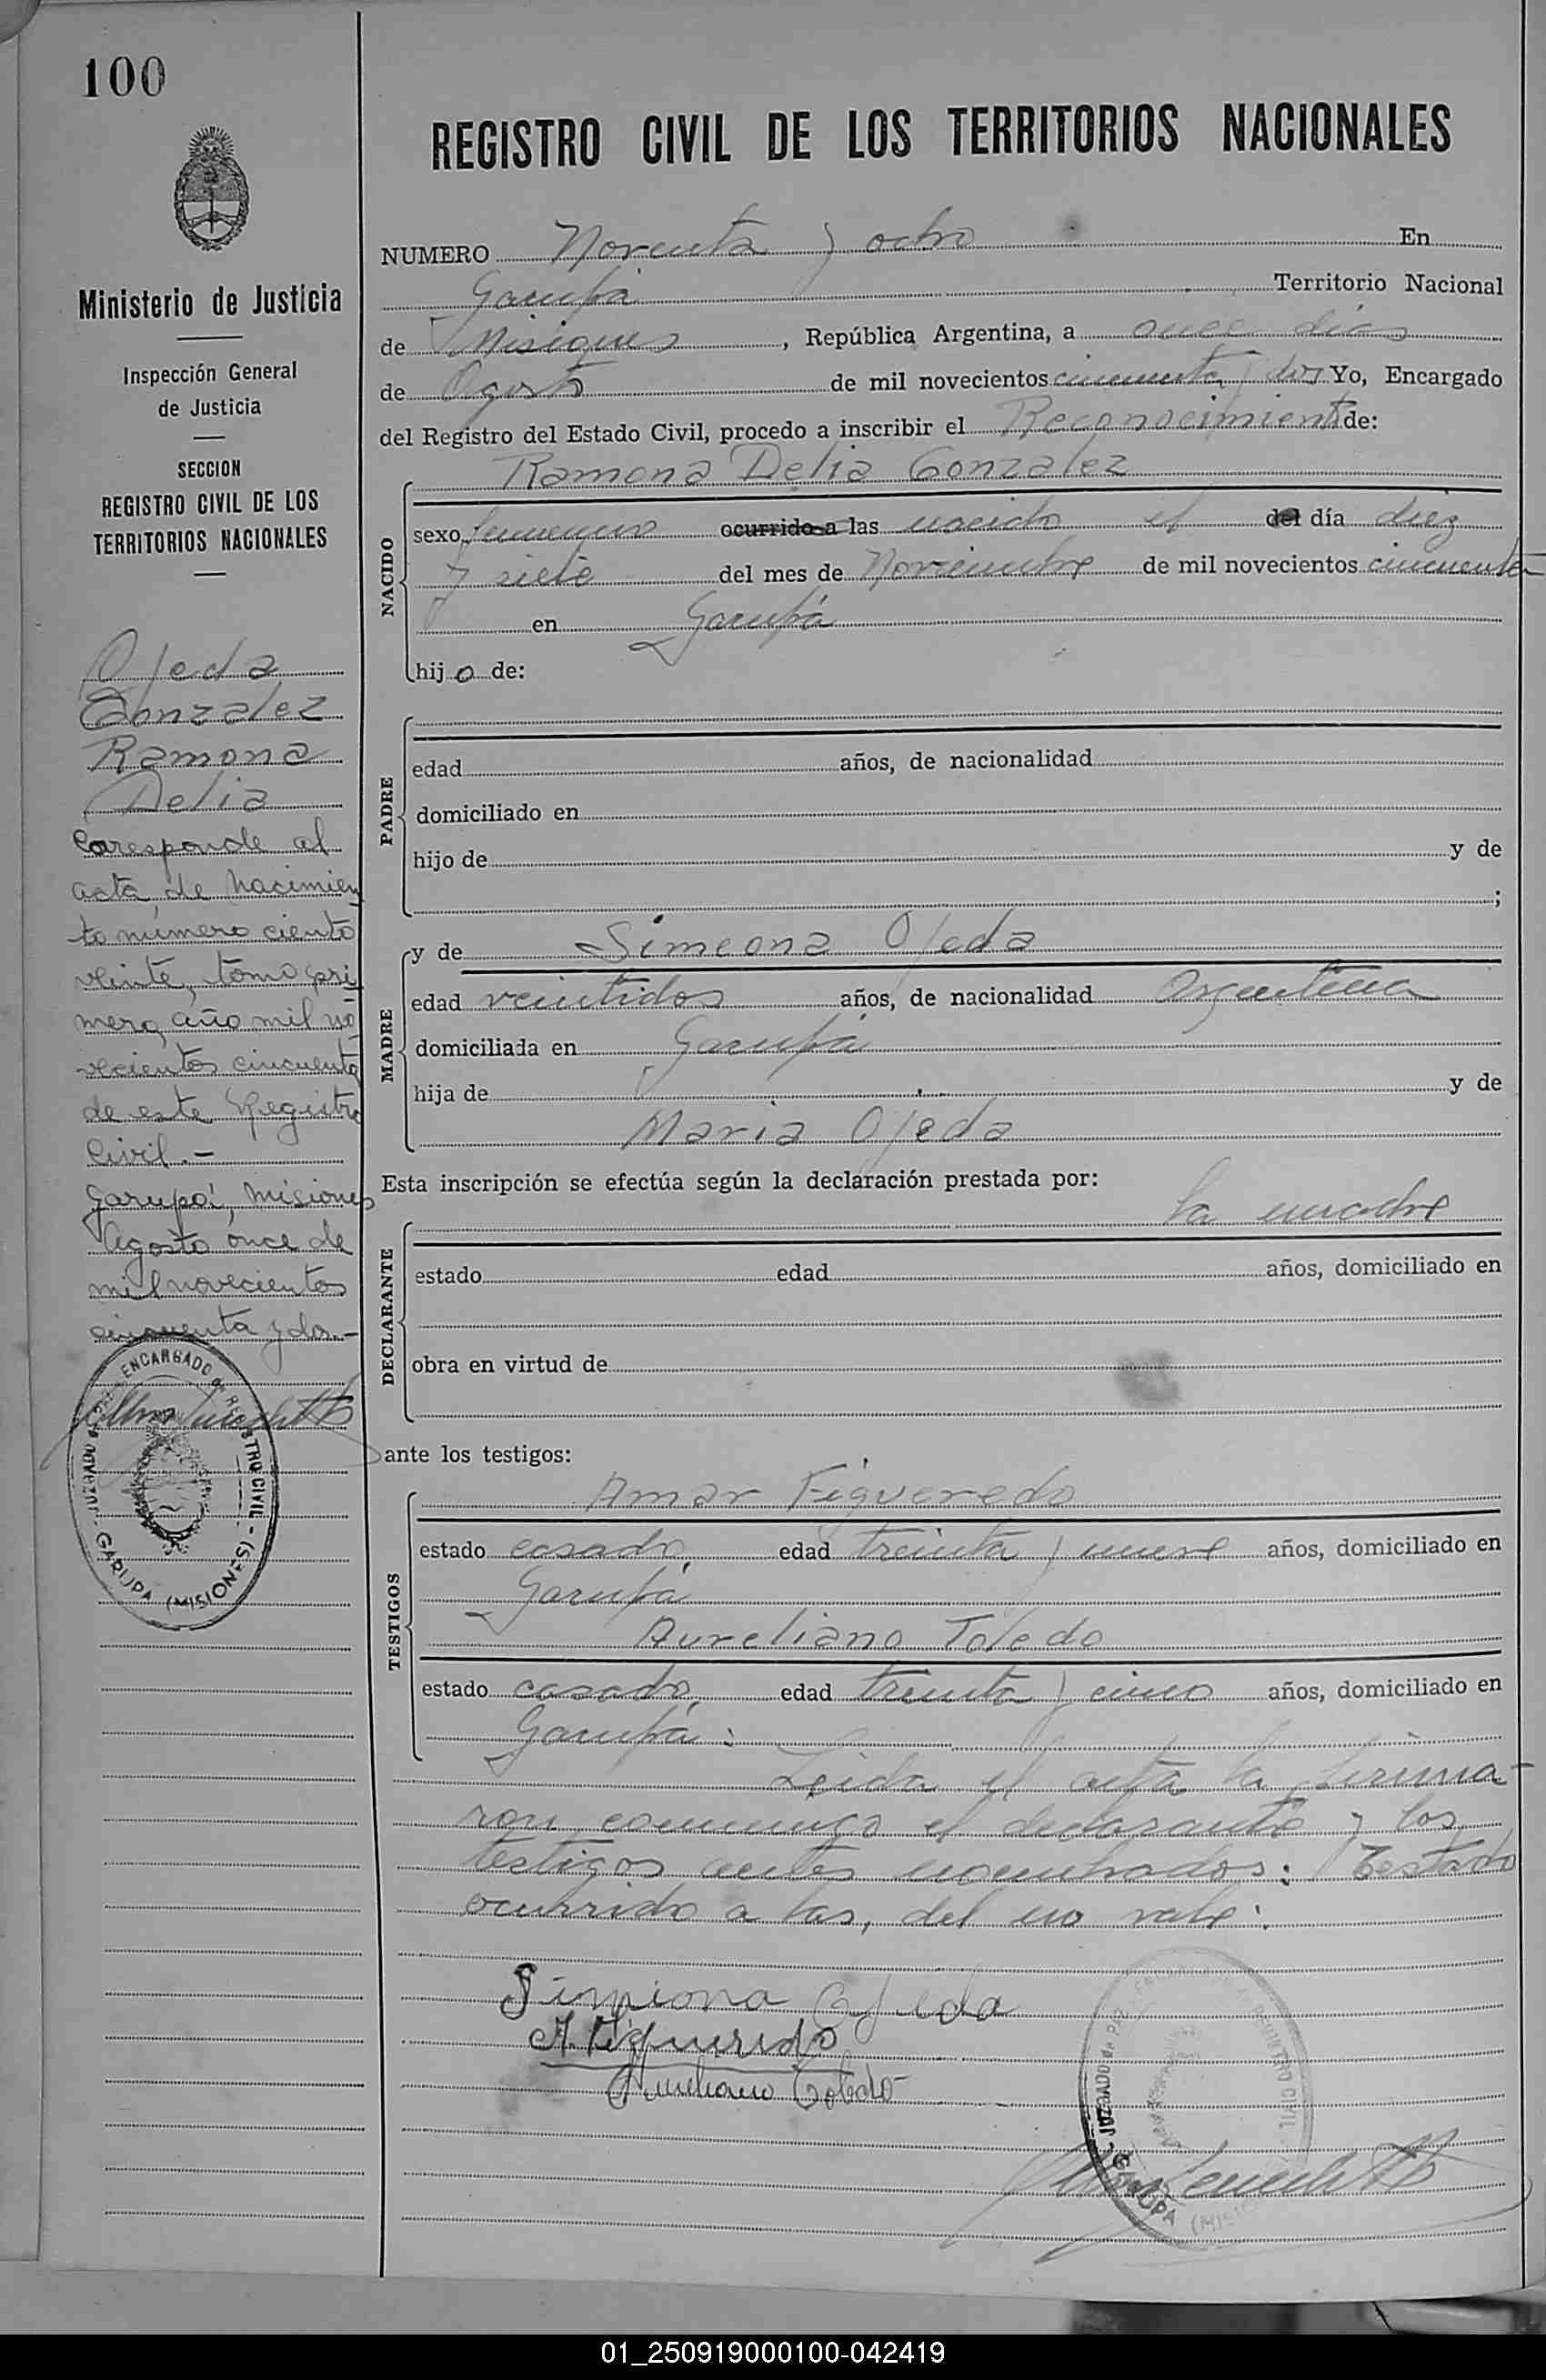 100
Ministerio de Justicia
Inspección General
de Justicia
SECCION
REGISTRO CIVIL DE LOS
TERRITORIOS NACIONALES
Ojeda
Gonzalez
Ramona
Delia
Corresponde al
acta de nacimien
to número ciento
veinte, tomo pri
mero, año mil no
vecientos cincuenta
de este Registro
Civil.-
Garupá, Misiones
Agosto once de
mil novecientos
cincuenta y dos.-
JUZGADO de PAZ ENCARGADO de REGISTRO CIVIL - GARUPA (MISIONES)
REGISTRO CIVIL DE LOS TERRITORIOS NACIONALES
NUMERO Noventa y ocho En
Garupá Territorio Nacional
de Misiones, República Argentina, a once dias
de Agosto de mil novecientos cincuenta y dos Yo, Encargado
del Registro del Estado Civil, procedo a inscribir el Reconocimiento de:
NACIDO
Ramona Delia Gonzalez
sexo femenino ocurrido a las nacido el del día diez
y siete del mes de Noviembre de mil novecientos cincuenta
en Garupá
hijo de:
PADRE
edad años, de nacionalidad
domiciliado en
hijo de y de
;
MADRE
y de Simeona Ojeda
edad veintidos años, de nacionalidad Argentina
domiciliada en Garupá
hija de y de
Maria Ojeda
Esta inscripción se efectúa según la declaración prestada por:
DECLARANTE
la madre
estado edad años, domiciliado en
obra en virtud de
ante los testigos:
TESTIGOS
Amar Figueredo
estado casado, edad treinta y nueve años, domiciliado en
Garupá
Aureliano Toledo
estado casado, edad treinta y cinco años, domiciliado en
Garupá:
Leida el acta la firma-
ron conmigo el declarante y los
testigos antes nombrados: Testado
ocurrido a las, del no vale:
Simiona Ojeda
A. Figueredo
Aureliano Toledo
JUZGADO de PAZ REGISTRO CIVIL GARUPA (MISIONES)
01_250919000100-042419